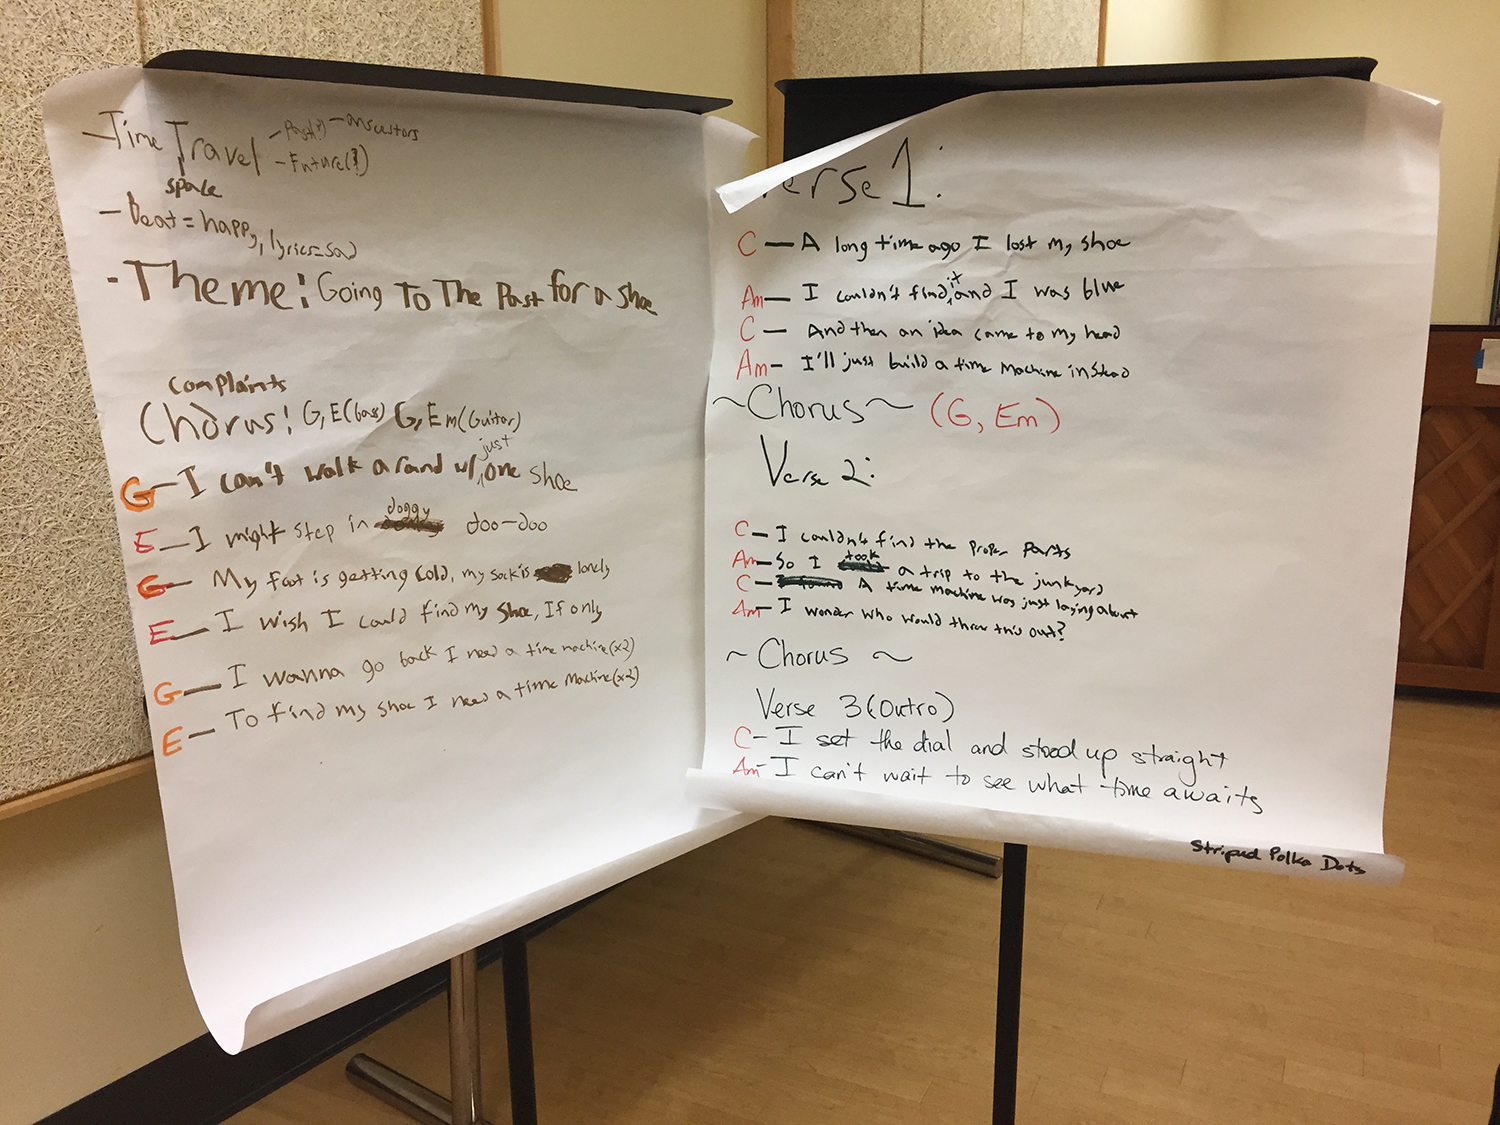 - Time Travel - Past(?) - ancestors
- Future(?)
space
- beat = happy, lyrics = sad
- Theme: Going To The Past for a shoe
complaints
Chorus: G, E (bass) G, Em (Guitar)
just
G - I can't walk around w/ one shoe
doggy
E - I might step in doo-doo
G - My foot is getting cold, my sock is lonely
E - I wish I could find my shoe, If only
G - I wanna go back I need a time machine (x2)
E - To find my shoe I need a time machine (x2)
Verse 1:
C - A long time ago I lost my shoe
Am - I couldn't find it and I was blue
C - And then an idea came to my head
Am - I'll just build a time machine instead
~ Chorus ~ (G, Em)
Verse 2:
C - I couldn't find the proper parts
Am - So I took a trip to the junkyard
C - A time machine was just laying about
Am - I wonder who would throw this out?
~ Chorus ~
Verse 3 (Outro)
C - I set the dial and stood up straight
Am - I can't wait to see what time awaits
Striped Polka Dots